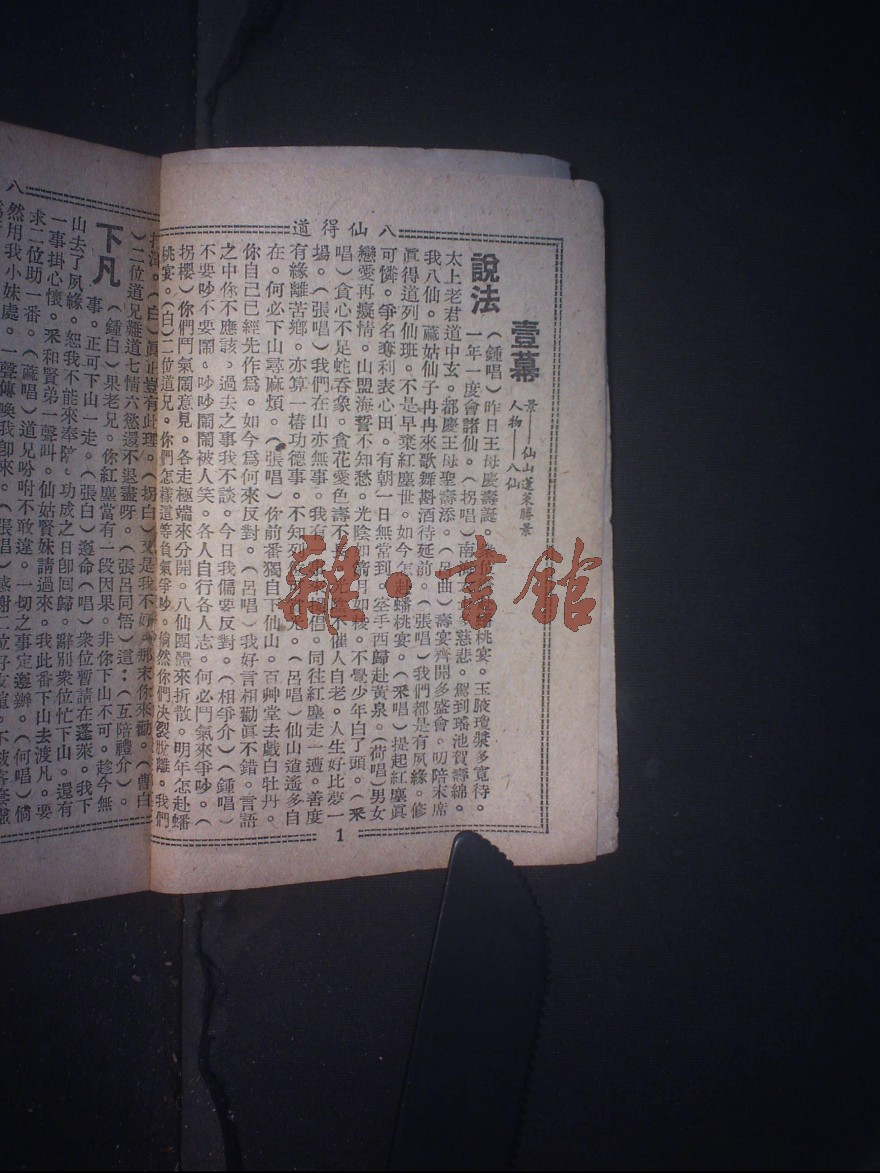 八仙得道
壹幕
景——仙山蓬萊勝景
人物——八仙
說法
(鍾唱)昨日王母慶壽誕。桃宴。玉液瓊漿多寬待。
太上老君道中玄。都慶王母聖壽添。(呂曲)壽宴齊開多盛會。叨陪末席
一年一度會諸仙。(拐唱)南慈悲。駕到瑤池賀壽綿。
我八仙。蔴姑仙子冉冉來歌舞斟酒待延前。(張唱)我們都是有夙緣。修
眞得道列仙班。不是早棄紅塵世。如今怎赴蟠桃宴。(釆唱)提起紅塵眞
可憐。爭名奪利表心田。有朝一日無常到。空手西歸赴黃泉。(荷唱)男女
戀愛再癡情。山盟海誓不知愁。光陰如箭月如梭。不覺少年白了頭。(釆
唱)貪心不足蛇呑象。貪花愛色壽不長。不催人自老。人生好比夢一
場。(張唱)我們在山亦無事。我有倡。同往紅塵走一遭。善度
有緣離苦鄉。亦算一樁功德事。不知列。(呂唱)仙山逍遙多自
在。何必下山尋麻煩。(張唱)你前番獨自下仙山。百艸堂去戲白牡丹。
你自己已經先作爲。如今爲何來反對。(呂唱)我好言相勸眞不錯。言語
之中你不應該。過去之事我不談。今日我偏要反對。(相爭介)(鍾唱)
不要吵不要鬧。吵吵鬧鬧被人笑。各人自行各人志。何必鬥氣來爭吵。(
拐樱)你們鬥氣鬧意見。各走極端來分開。八仙團體來折散。明年怎赴蟠
桃宴。(白)二位道兄。你們怎樣這等負氣爭吵。倘然你們决裂脫離。我們
1
(白)眞正豈有此理。(拐白)又是我不好。那末你來勸。(曹白
)二位道兄難道七情六慾還不退盡呀。(張呂同悟)這‥(互陪禮介)。
下凡
(鍾白)果老兄。你紅塵當有一段因果。非你下山不可。趁今無
事。正可下山一走。(張白)遵命(唱)衆位暫請在蓬萊。我下
山去了夙緣。恕我不能來奉陪。功成之日卽回歸。辭別衆位忙下山。還有
一事掛心懷。釆和賢弟一聲叫。仙姑賢妹請過來。我此番下山去渡凡。要
求二位助一番。(蔴唱)道兄吩咐不敢違。一切之事定遵辦。(何唱)倘
然用我小妹處。一聲傳喚我卽來。(張唱)感謝二位好
八